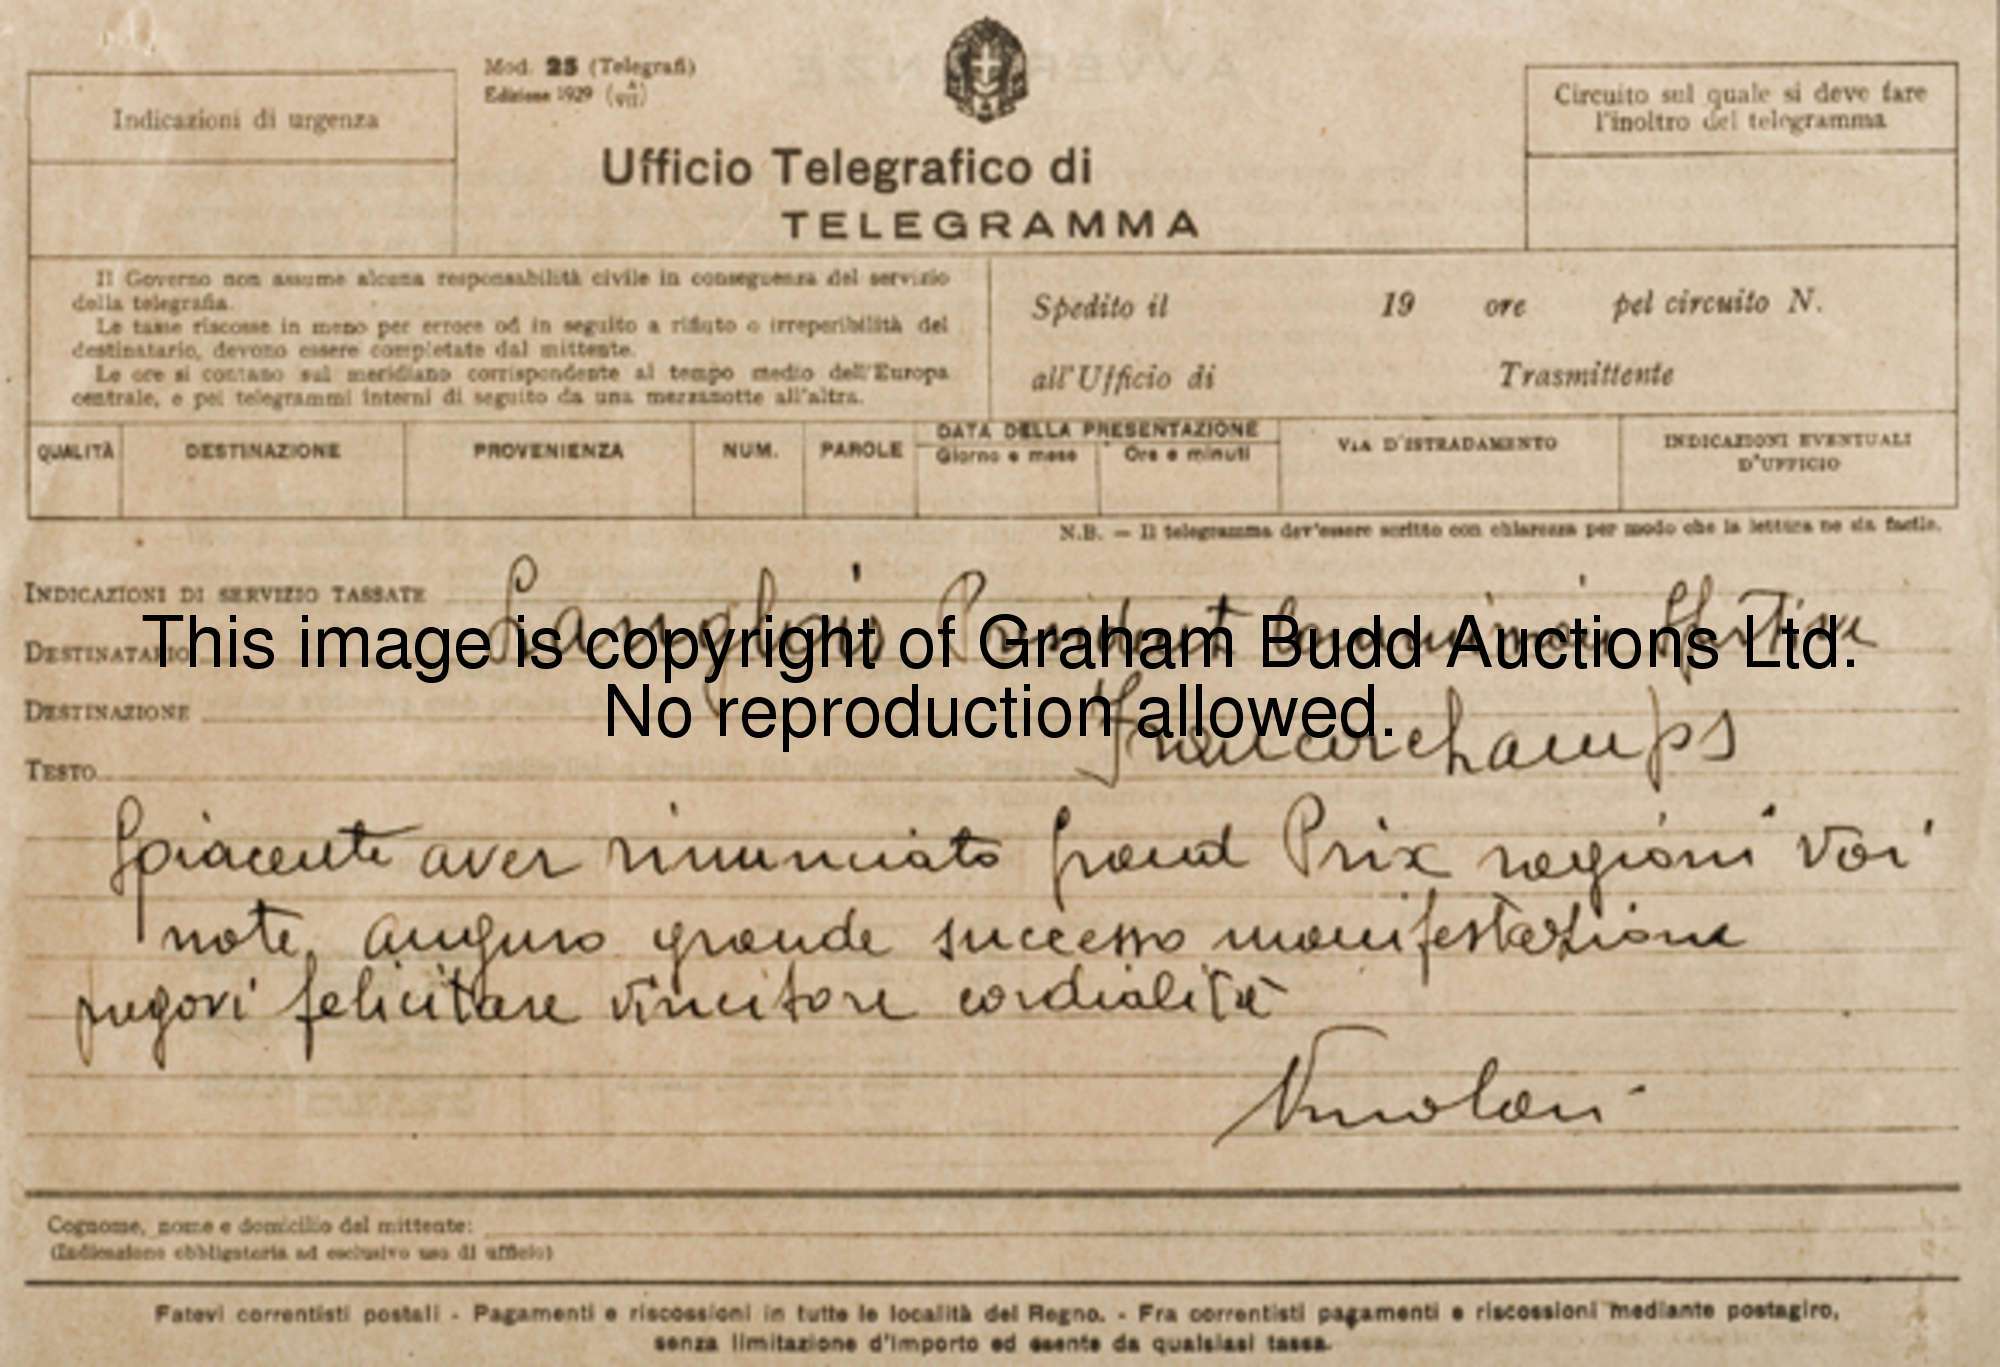 Mod. 25 (Telegrafi)
Edizione 1929 (A VII)
Indicazioni di urgenza
Circuito sul quale si deve fare
l'inoltro del telegramma
Ufficio Telegrafico di
TELEGRAMMA
Il Governo non assume alcuna responsabilità civile in conseguenza del servizio
della telegrafia.
Le tasse riscosse in meno per errore od in seguito a rifiuto o irreperibilità del
destinatario, devono essere completate dal mittente.
Le ore si contano sul meridiano corrispondente al tempo medio dell'Europa
centrale, e pei telegrammi interni di seguito da una mezzanotte all'altra.
Spedito il 19 ore pel circuito N.
all'Ufficio di Trasmittente
QUALITÀ DESTINAZIONE PROVENIENZA NUM. PAROLE DATA DELLA PRESENTAZIONE VIA D'ISTRADAMENTO INDICAZIONI EVENTUALI
Giorno e mese Ore e minuti D'UFFICIO
N.B. — Il telegramma dev'essere scritto con chiarezza per modo che la lettura ne sia facile.
INDICAZIONI DI SERVIZIO TASSATE
DESTINATARIO Langlois President
This image is copyright of Graham Budd Auctions Ltd.
No reproduction allowed.
DESTINAZIONE Francorchamps
TESTO
Spiacente aver rinunciato Grand Prix ragioni voi
note, auguro grande successo manifestazione
pregovi felicitare vincitore cordialità
Nuvolari
Cognome, nome e domicilio del mittente:
(Indicazione obbligatoria ad esclusivo uso di ufficio)
Fatevi correntisti postali - Pagamenti e riscossioni in tutte le località del Regno. - Fra correntisti pagamenti e riscossioni mediante postagiro,
senza limitazione d'importo ed esente da qualsiasi tassa.